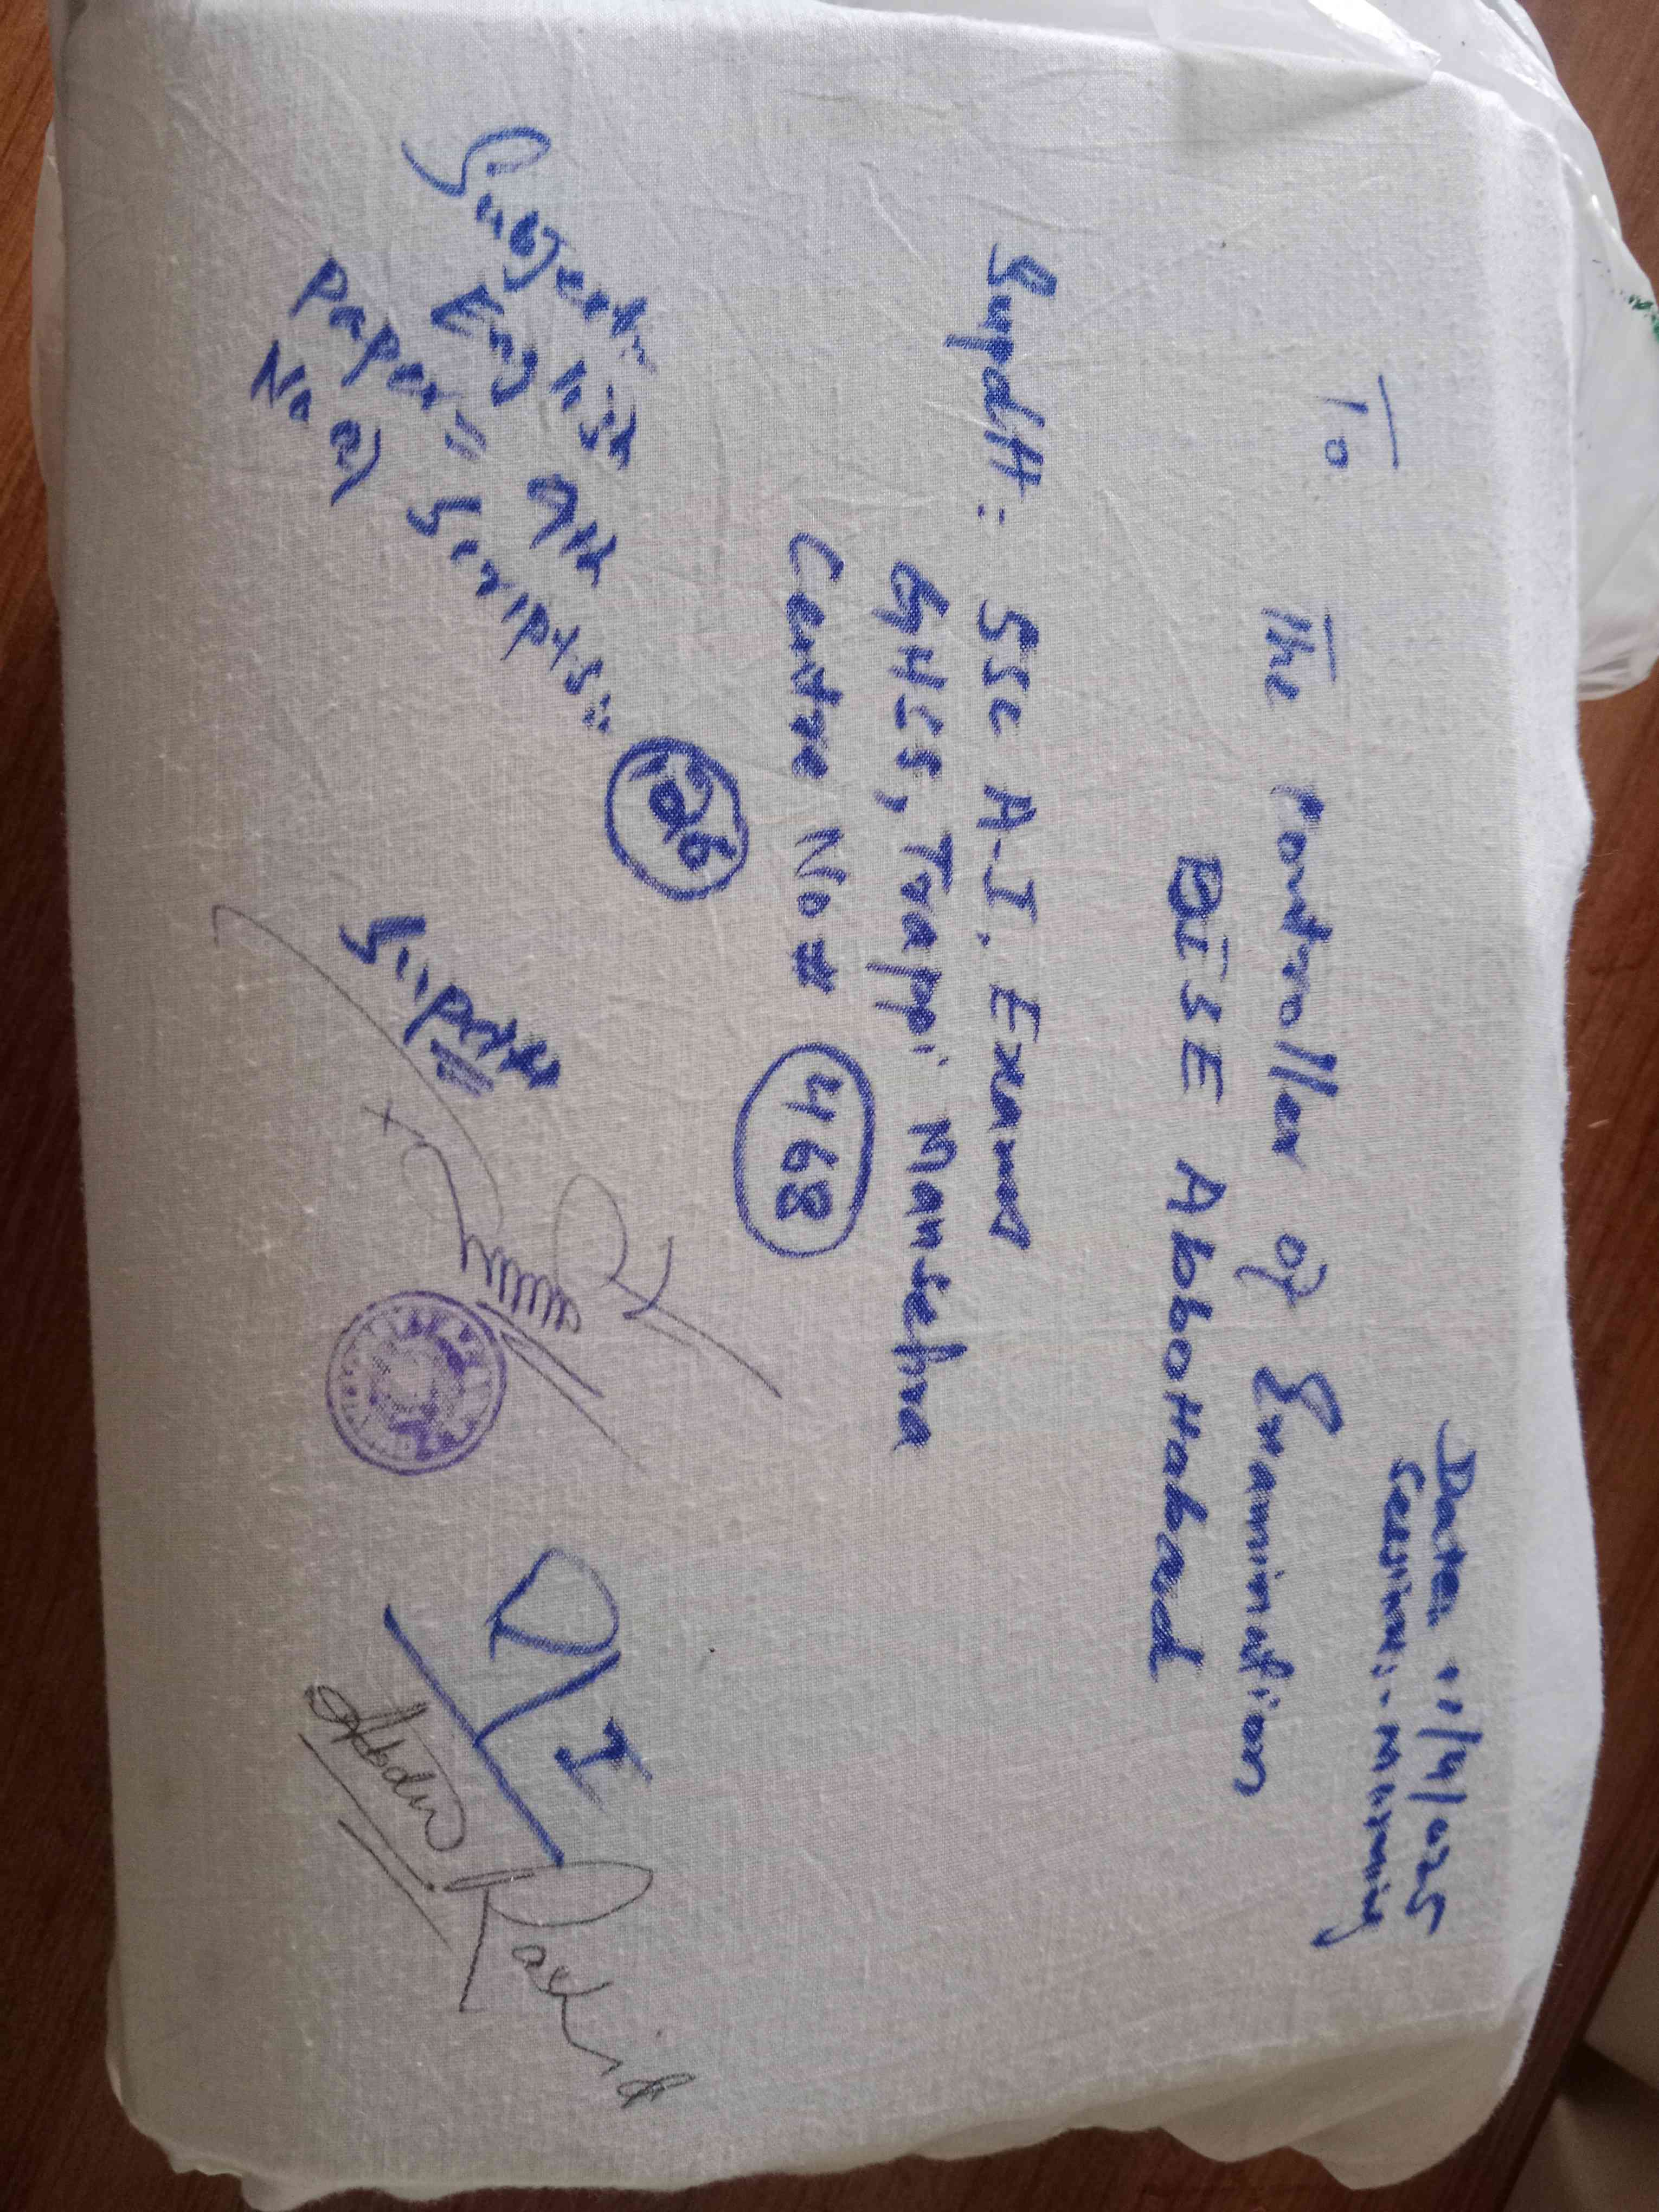 Date: 11/4/025
Session:- Morning
To
The Controller of Examination
BISE Abbottabad
Supdtt: SSC A-I. Exams
GHSS, Trappi Mansehra
Centre No # 468
Subject:-
English
Paper:= 9th
No of Scripts:= 106
Supdtt
D/I
Abdul Rashid